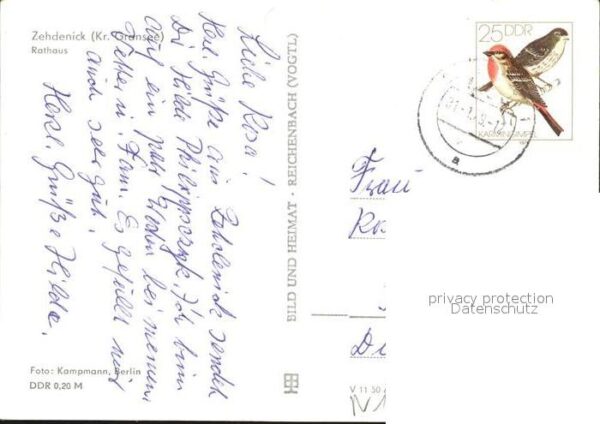 Zehdenick (Kr. Gransee)
Rathaus
Liebe Rosa!
Herzl. Grüße aus Zehdenick sendet
Dir Hilde Philippczyk. Ich bin
auf ein paar Wochen bei meinem
Vetter u. Fam. Es gefällt mir
auch sehr gut.
Herzl. Grüße Hilde.
Foto: Kampmann, Berlin
DDR 0,20 M
BILD UND HEIMAT · REICHENBACH (VOGTL)
25 DDR
KARMINGIMPEL
Frau
privacy protection
Datenschutz
V 11 50